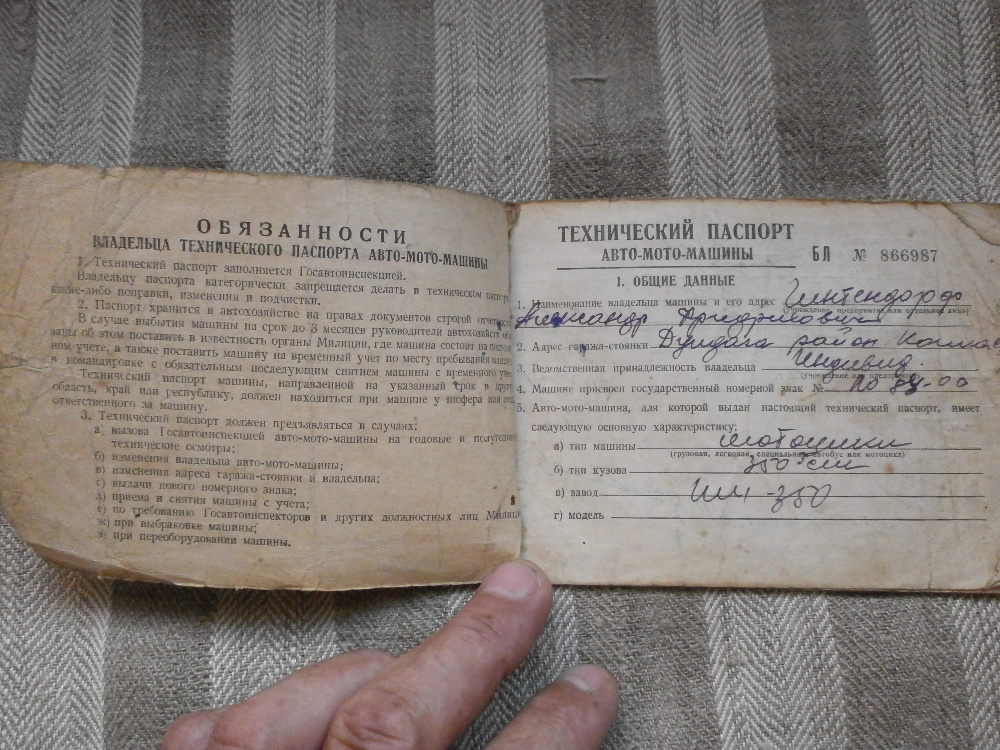 ОБЯЗАННОСТИ
ВЛАДЕЛЬЦА ТЕХНИЧЕСКОГО ПАСПОРТА АВТО-МОТО-МАШИНЫ
1. Технический паспорт заполняется Госавтоинспекцией.
Владельцу паспорта категорически запрещается делать в техническом
какие-либо поправки, изменения и подчистки.
2. Паспорт хранится в автохозяйстве на правах документов строгой
В случае выбытия машины на срок до 3 месяцев руководители автохозяйств
заны об этом поставить в известность органы Милиции, где машина состоит на
ном учете, а также поставить машину на временный учет по месту пребывания
в командировке с обязательным последующим снятием машины с временного
Технический паспорт машины, направленной на указанный срок в
область, край или республику, должен находиться при машине у шофера или
ответственного за машину.
3. Технический паспорт должен предъявляться в случаях:
а) вызова Госавтоинспекцией авто-мото-машины на годовые и
технические осмотры;
б) изменения владельца авто-мото-машины;
в) изменения адреса гаража-стоянки и владельца;
г) выдачи нового номерного знака;
д) приема и снятия машины с учета;
е) по требованию Госавтоинспекторов и других должностных лиц
ж) при выбраковке машины;
з) при переоборудовании машины.
ТЕХНИЧЕСКИЙ ПАСПОРТ
АВТО-МОТО-МАШИНЫ БЛ № 866987
1. ОБЩИЕ ДАННЫЕ
1. Наименование владельца машины и его адрес
(учреждение, предприятие или отдельное лицо)
Александр
2. Адрес гаража-стоянки Дундага район
3. Ведомственная принадлежность владельца Индивид
4. Машине присвоен государственный номерной знак №
5. Авто-мото-машина, для которой выдан настоящий технический паспорт, имеет
следующую основную характеристику:
а) тип машины мотоцикл
(грузовая, легковая, специальная, автобус или мотоцикл)
б) тип кузова 350
в) завод -350
г) модель